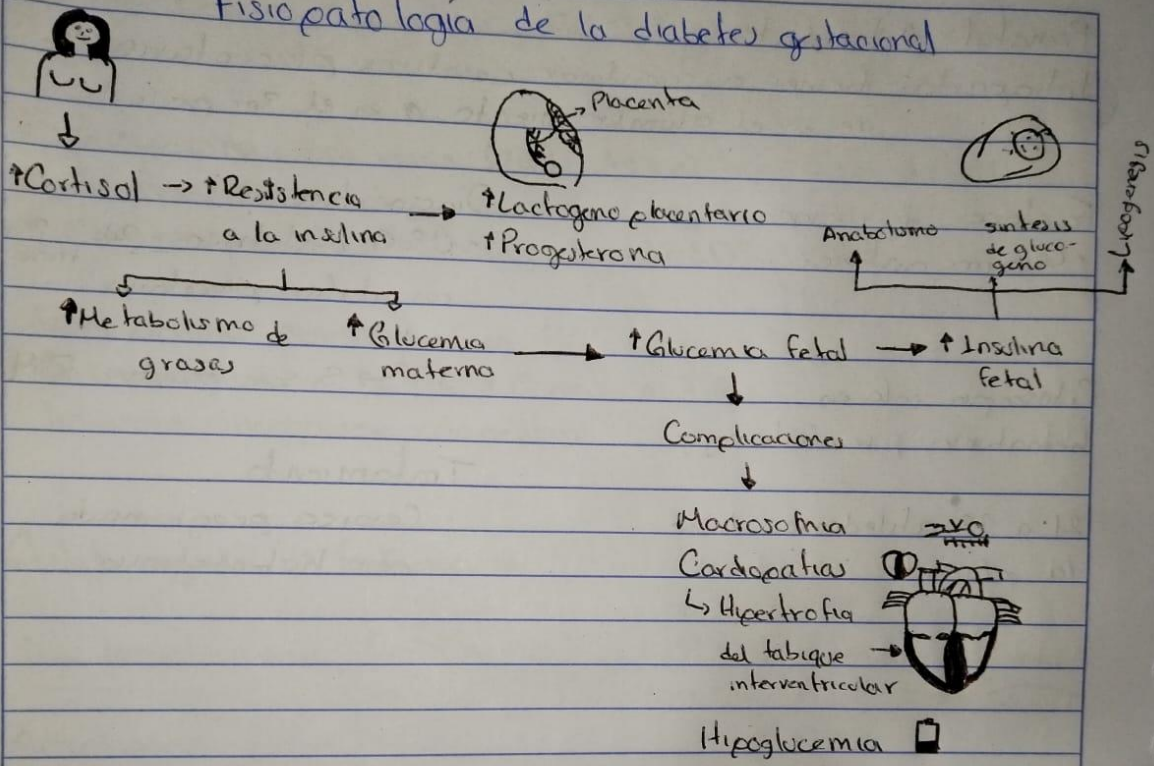 Fisiopatología de la diabetes gestacional
Placenta
↑Cortisol → ↑Resistencia
a la insulina
→ ↑Lactogeno placentario
↑Progesterona
Anabolismo
sintesis
de gluco-
geno
Lipogenesis
↑Metabolismo de
grasas
↑Glucemia
materna
→ ↑Glucemia fetal → ↑Insulina
fetal
Complicaciones
Macrosomia
Cardiopatias
↳ Hipertrofia
del tabique →
interventricular
Hipoglucemia